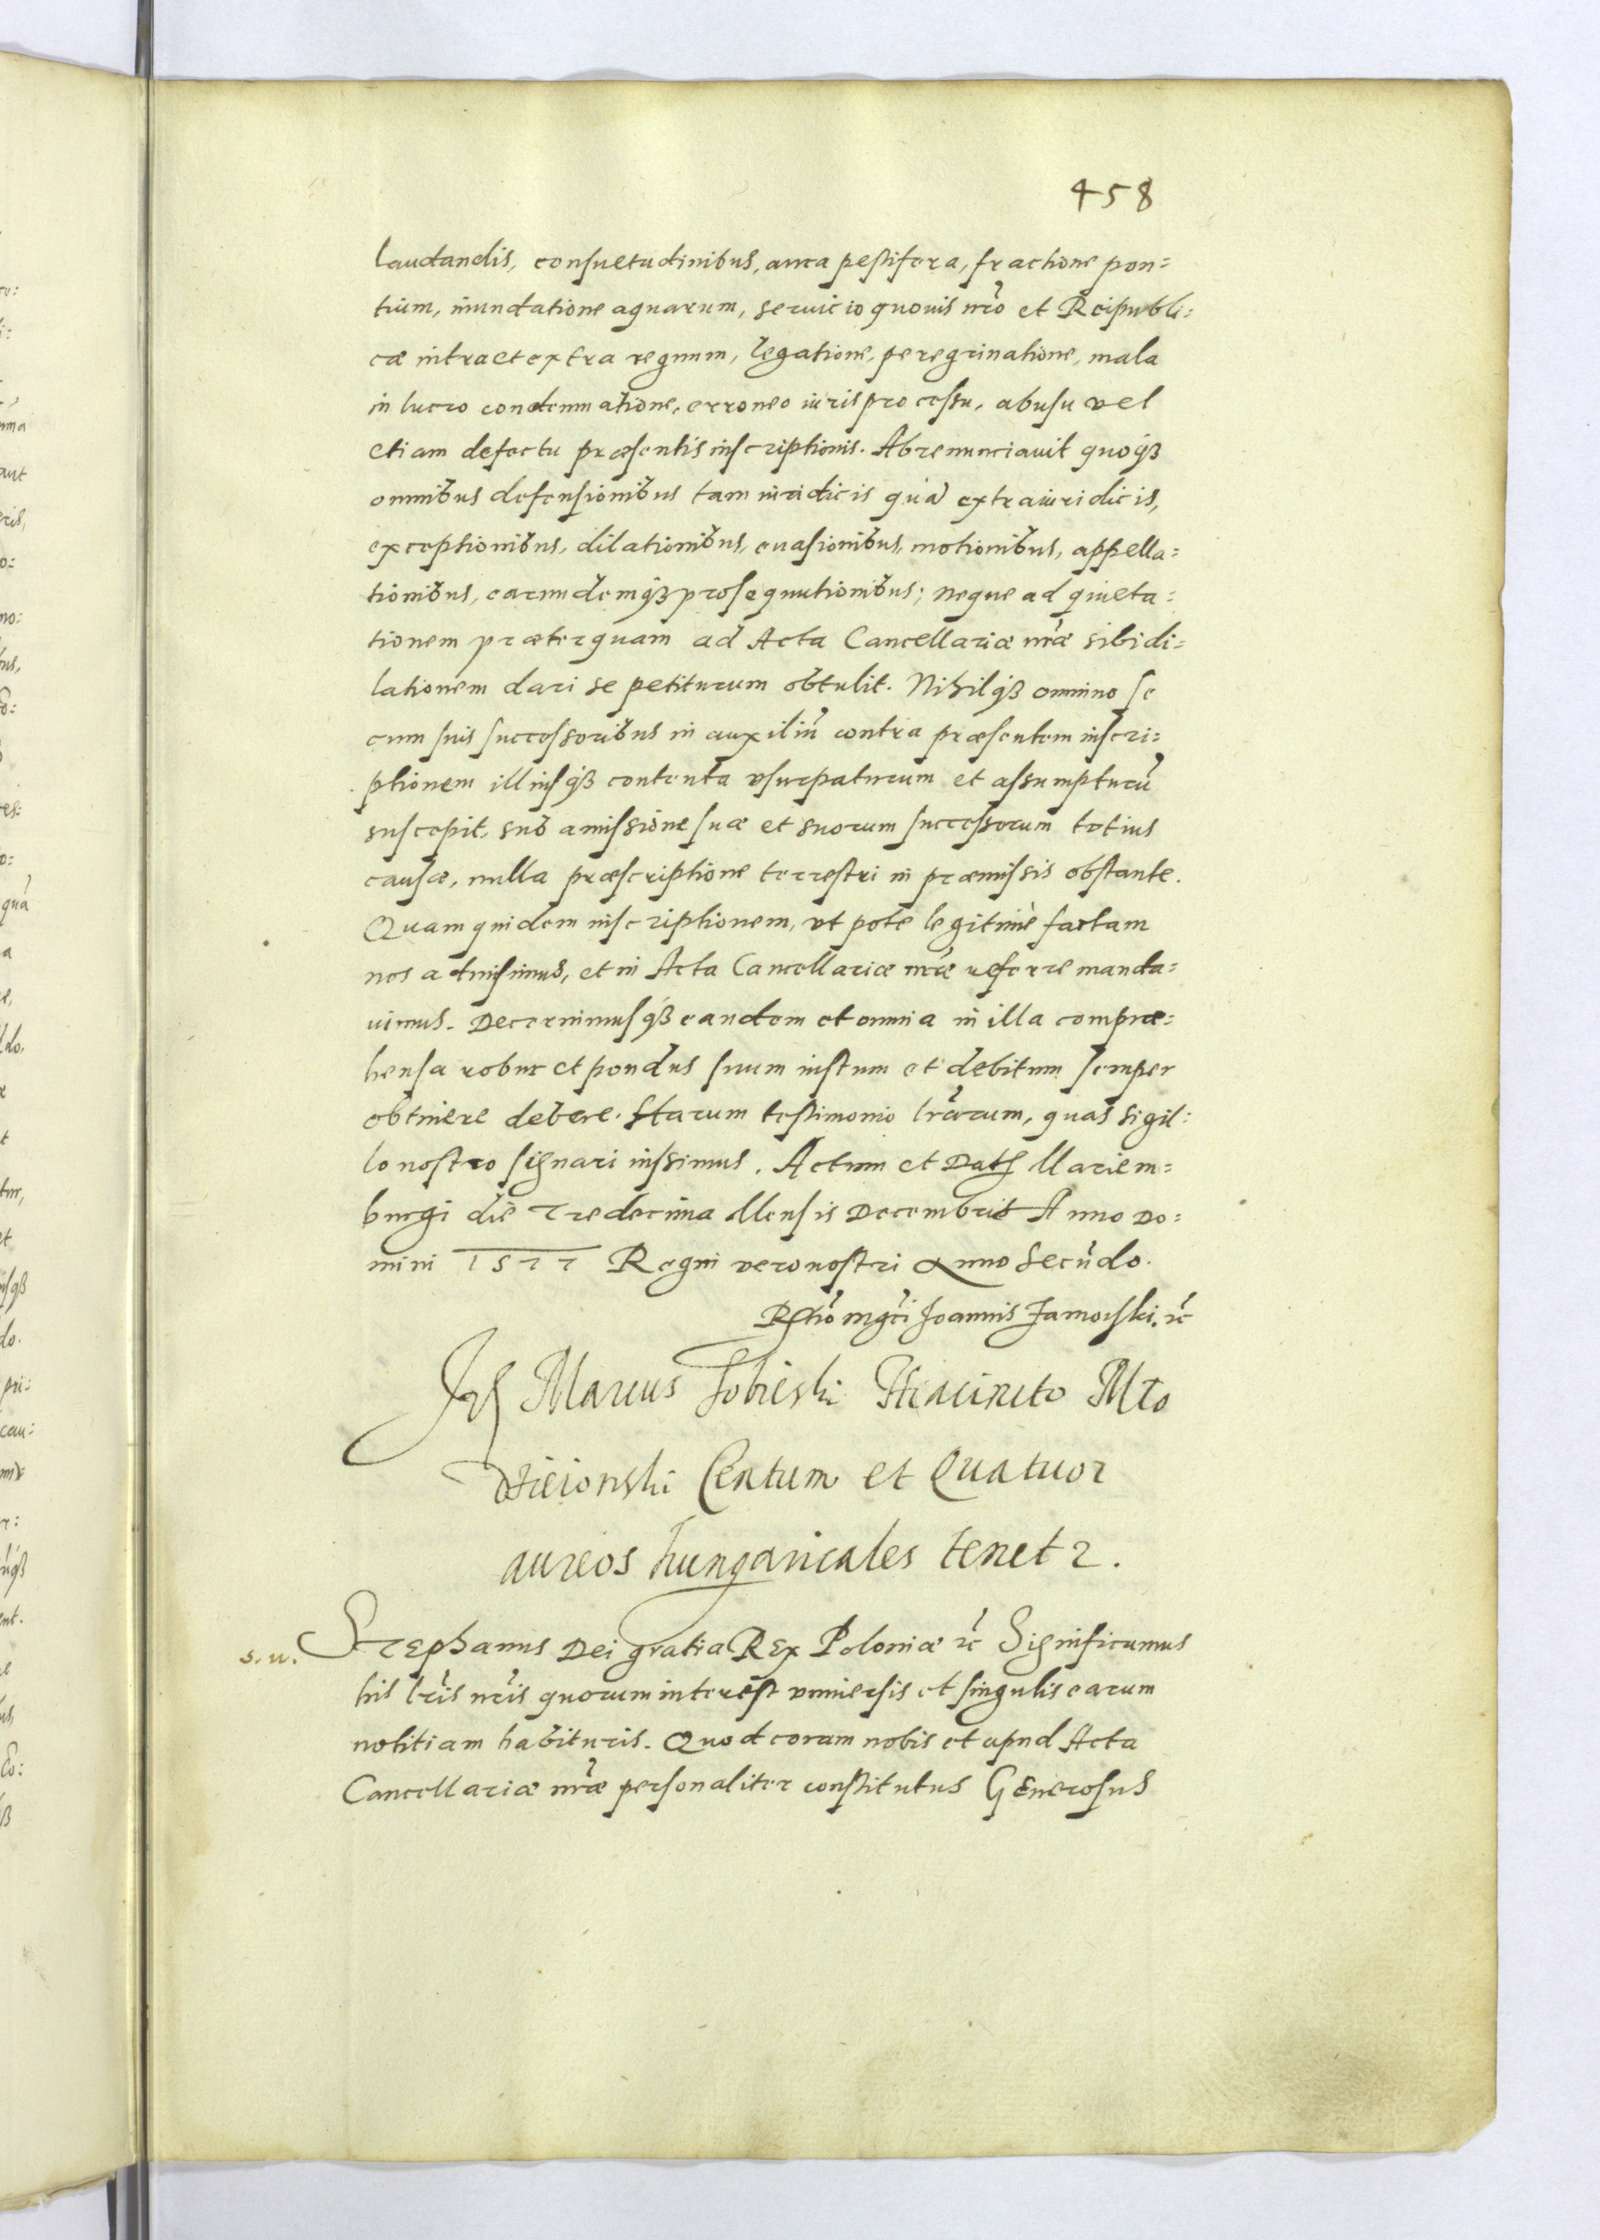 458
laudandis, consuetudinibus, aura pestifera, fractione pon=
tium, inundatione aquarum, seruicio quouis nro et Reipubli=
cæ intra et extra regnum, legatione, peregrinatione, mala
in lucro condemnatione, erroneo iuris processu, abusu vel
etiam defectu præsentis inscriptionis. Abrenunciauit quoqȝ
omnibus defensionibus tam iuridicis quã extraiuridicis,
exceptionibus, dilationibus, euasionibus, motionibus, appella=
tionibus, earundemqȝ prosequutionibus; neque ad quieta=
tionem præterquam ad Acta Cancellariæ nræ sibi di=
lationem dari se petiturum obtulit. Nihilqȝ omnino se
cum suis successoribus in auxiliũ contra præsentem inscri=
ptionem illiusqȝ contenta vsurpaturum et assumpturũ
suscepit, sub amissione suæ et suorum successorum totius
causæ, nulla præscriptione terrestri in præmissis obstante.
Quam quidem inscriptionem, vt pote legitimè factam
nos admisimus, et in Acta Cancellariæ nræ referre manda=
uimus. Decernimusqȝ eandem et omnia in illa compræ=
hensa robur et pondus suum iustum et debitum semper
obtinere debere. Harum testimonio lrarum, quas sigil=
lo nostro signari iussimus. Actum et Dat Mariem=
burgi die Tredecima Mensis Decembris Anno Do=
mini 1577 Regni vero nostri Anno Secũdo.
Rtio mgci Joannis Zamoyski. etc
Marcus Sobieski Hiacincto Mło
dzieionski Centum et Quatuor
aureos hungaricales tenetr.
s. n.
Stephanus Dei gratia Rex Poloniæ etc Significamus
his lris nris quorum interest vniuersis et singulis earum
notitiam habituris. Quod coram nobis et apud Acta
Cancellariæ nræ personaliter constitutus Generosus